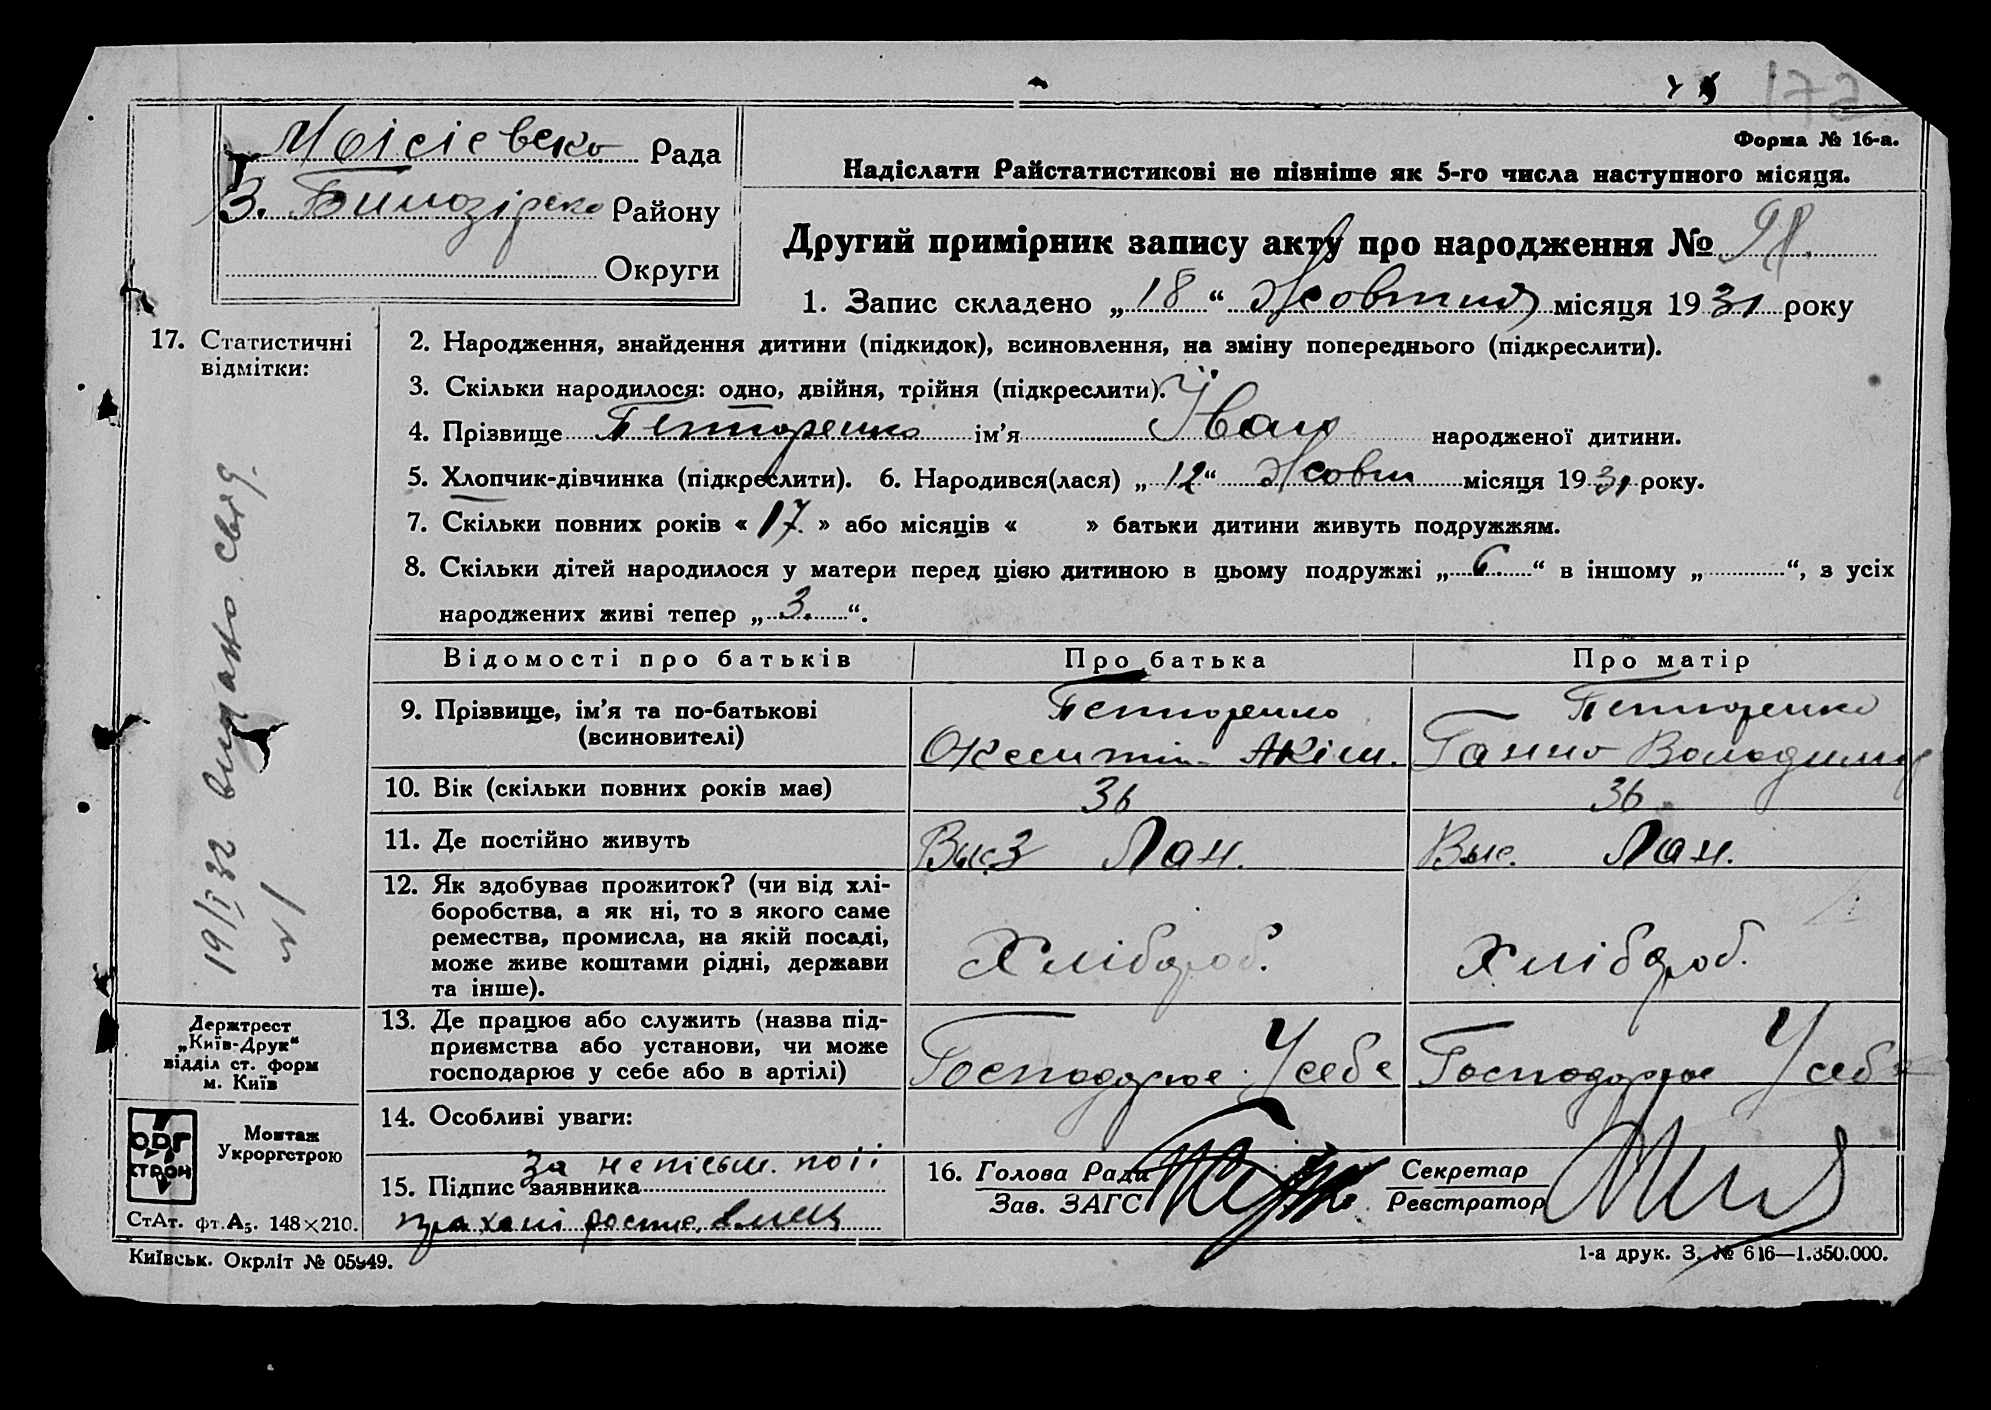 173
Форма № 16-а.
Моісієвсько Рада
З. Білозірсько Району
Округи
Надіслати Райстатистикові не пізніше як 5-го числа наступного місяця.
Другий примірник запису акту про народження № 98.
1. Запис складено „ 18 “ Жовтня місяця 1931 року
17. Статистичні
відмітки:
19/I 32 видано свід.
2. Народження, знайдення дитини (підкидок), всиновлення, на зміну попереднього (підкреслити).
3. Скільки народилося: одно, двійня, трійня (підкреслити).
4. Прізвище ім’я Іван народженої дитини.
5. Хлопчик-дівчинка (підкреслити). 6. Народився(лася) „ 12 “ Жовт місяця 1931 року.
7. Скільки повних років « 17. » або місяців « » батьки дитини живуть подружжям.
8. Скільки дітей народилося у матери перед цією дитиною в цьому подружжі „ 6. “ в іншому „ “, з усіх
народжених живі тепер „ 3. “.
Відомості про батьків Про батька Про матір
9. Прізвище, ім’я та по-батькові
(всиновителі)
Акім. Ганна Володими
10. Вік (скільки повних років має) 36 36
11. Де постійно живуть Выс. Лан. Выс. Лан.
12. Як здобуває прожиток? (чи від хлі-
боробства, а як ні, то з якого саме
ремества, промисла, на якій посаді,
може живе коштами рідні, держави
та інше).
Хлібороб. Хлібороб.
13. Де працює або служить (назва під-
приємства або установи, чи може
господарює у себе або в артілі)
Господорює У себе Господорює У себе
14. Особливі уваги:
15. Підпис заявника За непісьм. по її
прохані
16. Голова Ради
Зав. ЗАГС
Секретар
Реєстратор
Держтрест
„Київ-Друк“
відділ ст. форм
м. Київ
ОРГ
СТРОМ
Монтаж
Укроргстрою
СтАт. фт.А₅. 148×210.
Київськ. Окрліт № 05949.
1-а друк. З. № 616—1.350.000.